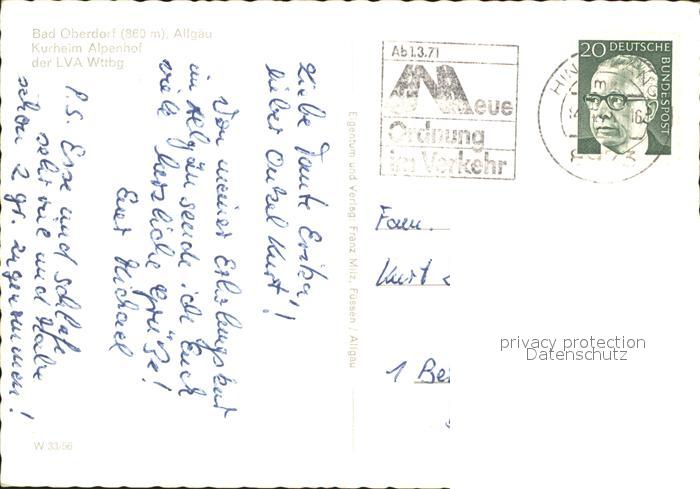 Bad Oberdorf (860 m), Allgäu
Kurheim Alpenhof
der LVA Wttbg.
Liebe Tante Erika,
lieber Onkel Kurt!
Von meiner Erholungskur
im Allgäu sende ich Euch
viele herzliche Grüße!
Euer Michael
P.S. Esse und schlafe
sehr viel und habe
schon 2 gr. zugenommen!
W 33/56
Eigentum und Verlag: Franz Milz, Füssen / Allgäu
Ab 1.3.71
Neue
Ordnung
im Verkehr
20 DEUTSCHE
BUNDESPOST
8973
Fam.
Kurt
1 Ber
privacy protection
Datenschutz